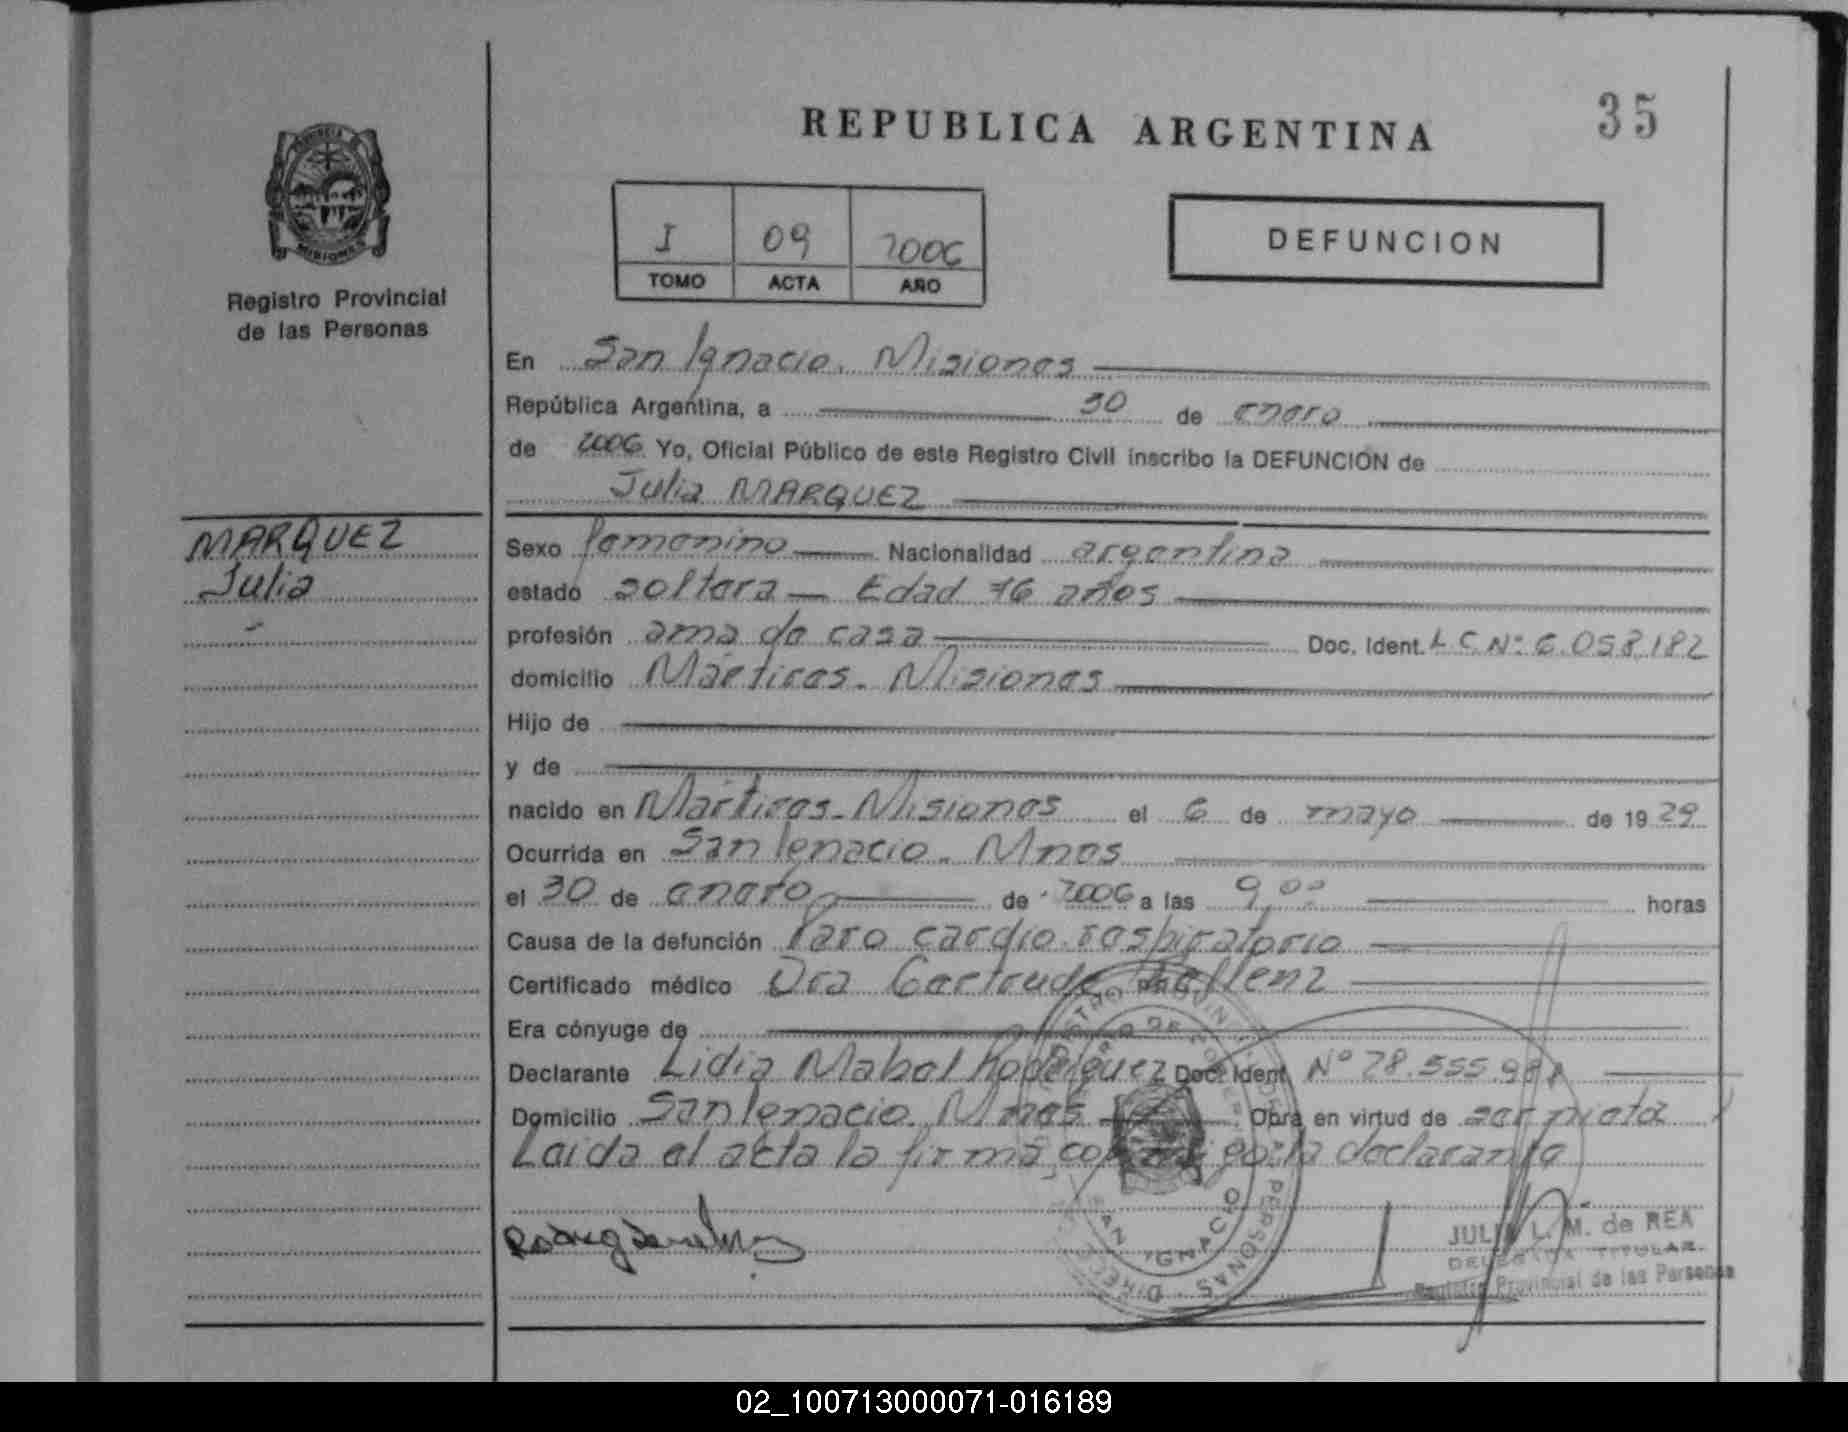 35
REPUBLICA ARGENTINA
PROVINCIA DE
MISIONES
Registro Provincial
de las Personas
I 09 2006
TOMO ACTA AÑO
DEFUNCION
En San Ignacio. Misiones
República Argentina, a 30 de enero
de 2006 Yo, Oficial Público de este Registro Civil inscribo la DEFUNCION de
Julia MARQUEZ
MARQUEZ
Julia
Sexo femenino Nacionalidad argentina
estado soltera Edad 76 años
profesión ama de casa Doc. Ident. L C Nº 6.058.182
domicilio Mártires. Misiones
Hijo de
y de
nacido en Mártires. Misiones el 6 de mayo de 1929
Ocurrida en San Ignacio. Mnes
el 30 de enero de 2006 a las 9,00 horas
Causa de la defunción Paro cardio respiratorio
Certificado médico Dra Gertrude
Era cónyuge de
Declarante Lidia Mabel Rodriguez Doc. Ident Nº 28.555.
Domicilio San Ignacio. Mnes Obra en virtud de ser nieta
Leida el acta la firma conmigo la declarante
SAN IGNACIO
JULIA L. M. de REA
DELEGADA TITULAR
Registro Provincial de las Personas
02_100713000071-016189